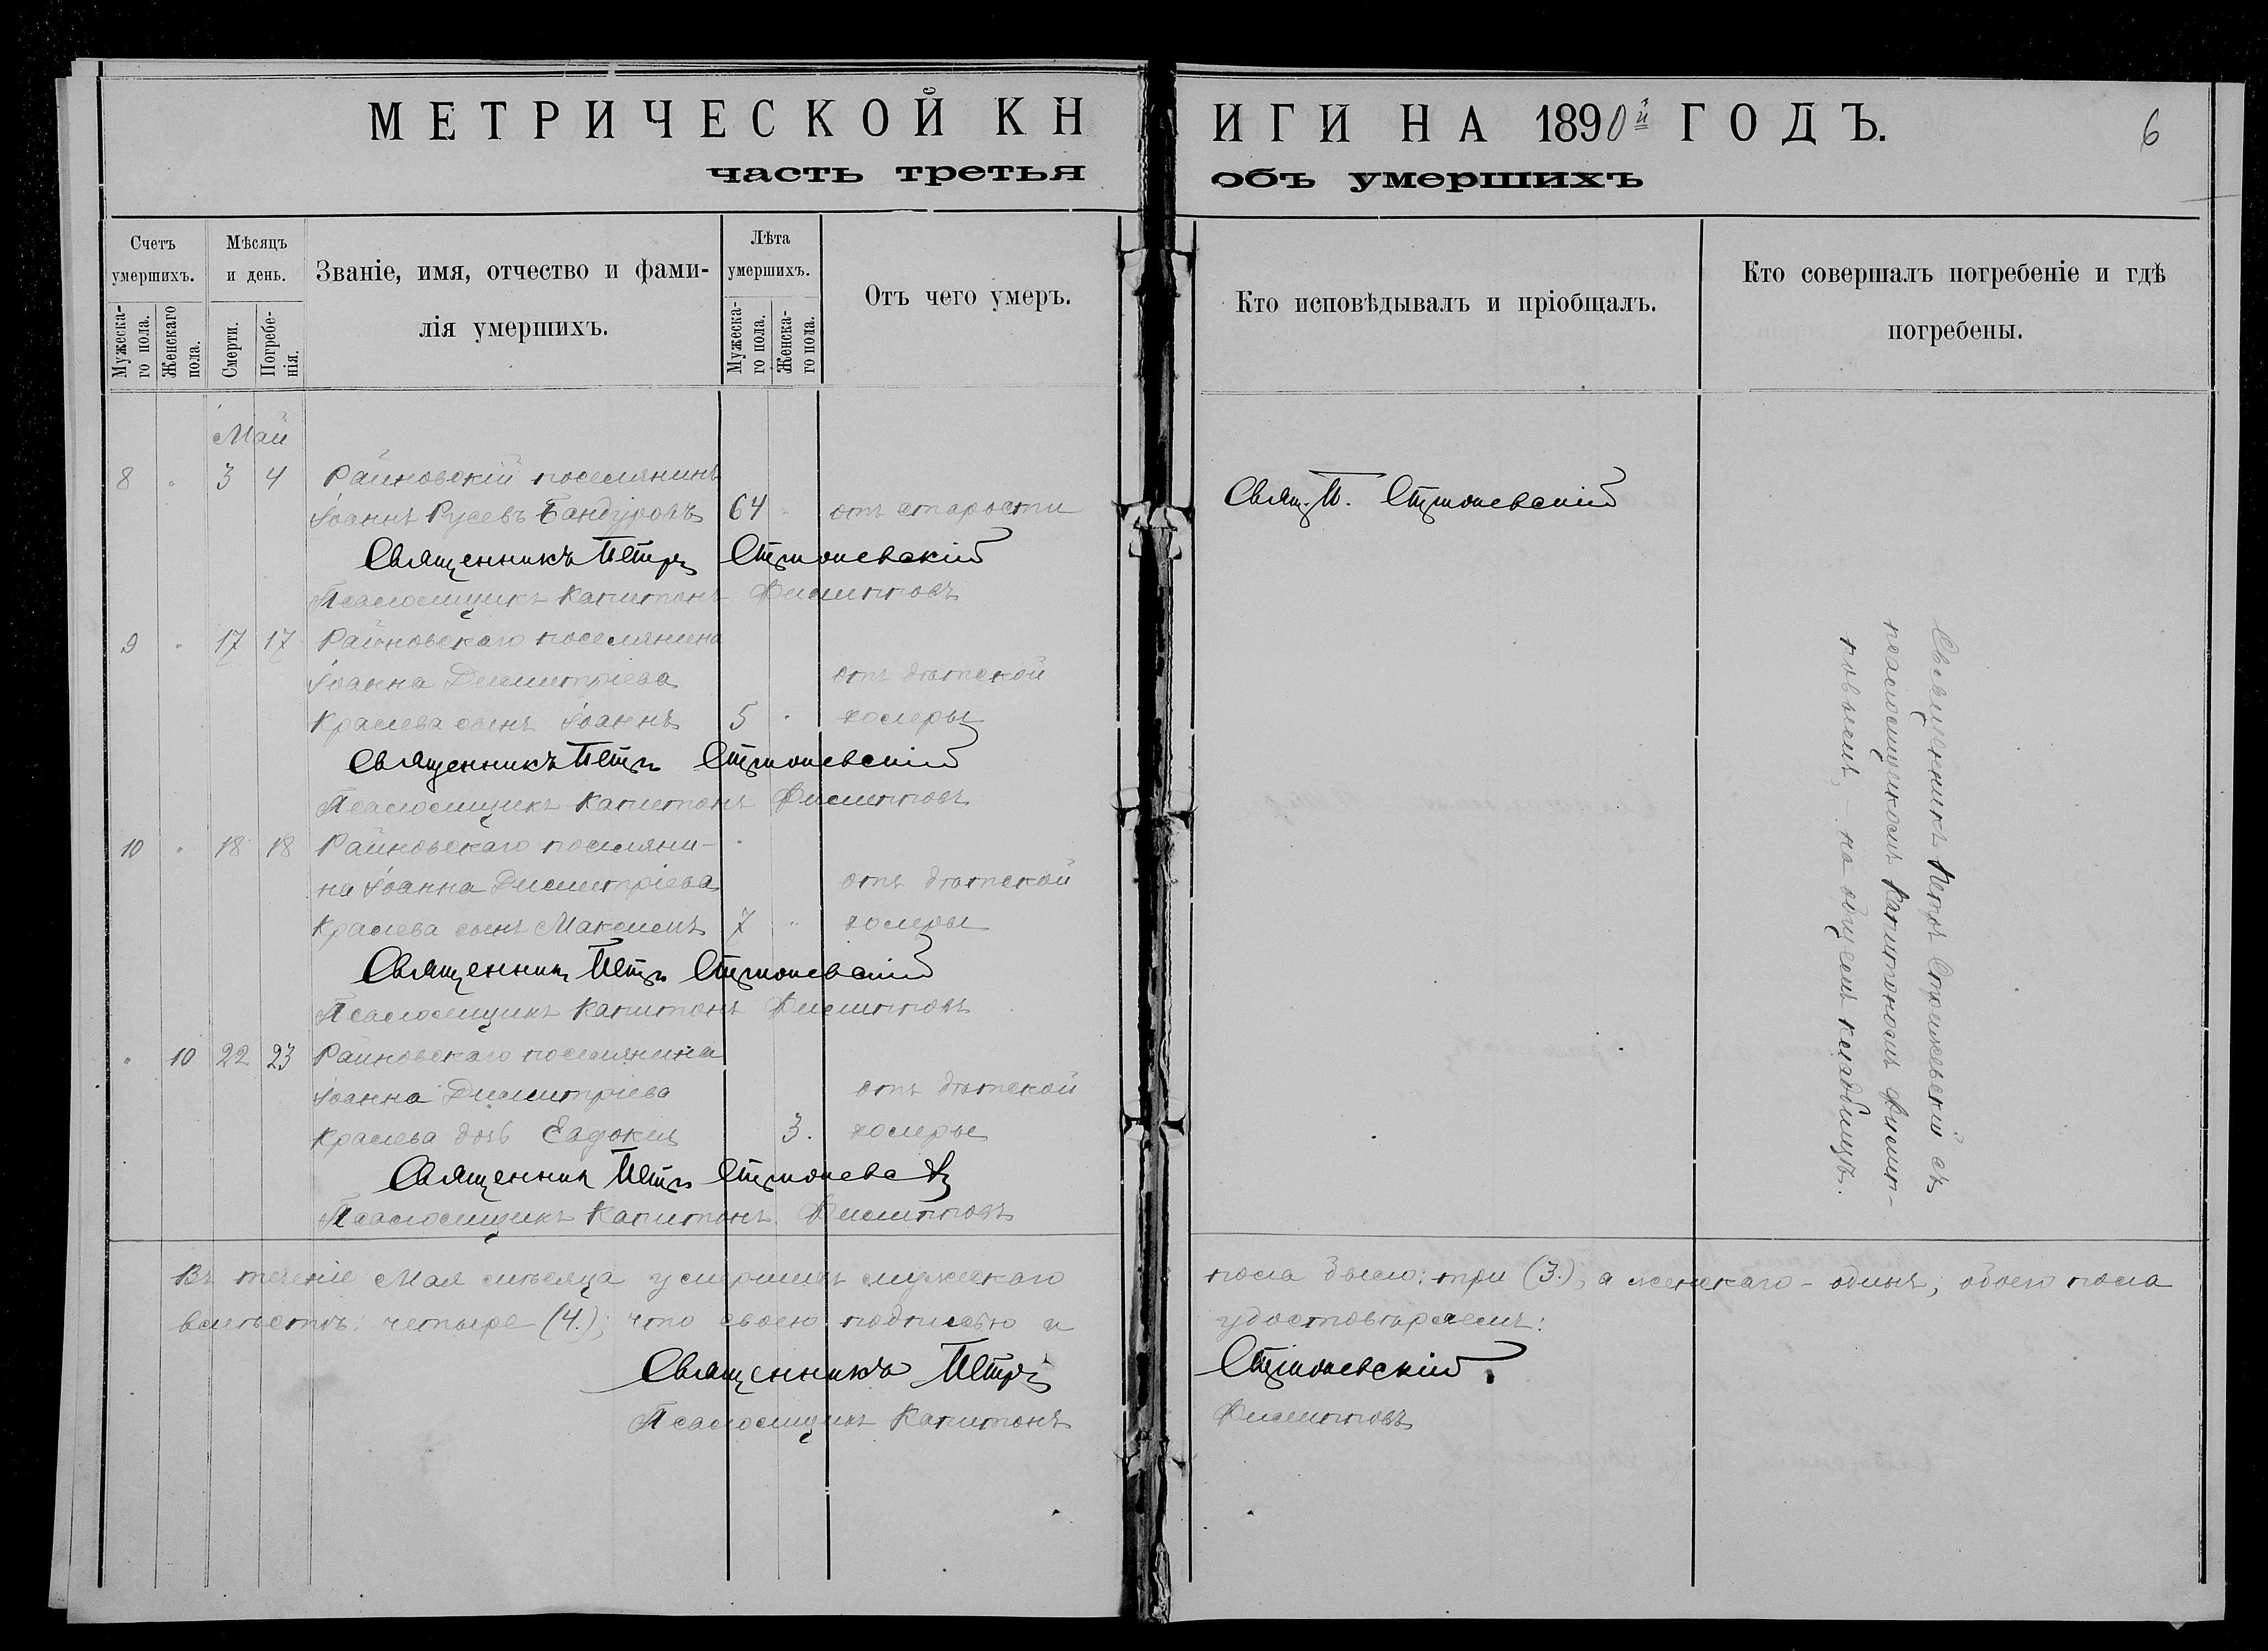 МЕТРИЧЕСКОЙ КНИГИ НА 1890й ГОДЪ.
6
часть третья объ умершихъ
Счетъ умершихъ.
Мужеска-го пола.
Женскаго пола.
Мѣсяцъ и день.
Смерти.
Погребе-нія.
Званіе, имя, отчество и фами-
лія умершихъ.
Лѣта умершихъ.
Мужеска-го пола.
Женска-го пола.
Отъ чего умеръ.
Кто исповѣдывалъ и пріобщалъ.
Кто совершалъ погребеніе и гдѣ
погребены.
Май
8 " 3 4 Райновскій поселянинъ
Іоаннъ Русевъ Бандуровъ 64 " отъ старости Свящ. П.
Священникъ Петръ
Псаломщикъ Капитонъ Филипповъ
9 " 17 17 Райновскаго поселянина
Іоанна Димитріева отъ дѣтской
Кралева сынъ Іоаннъ 5 " холеры
Священникъ Петръ
Псаломщикъ Капитонъ Филипповъ
10 " 18 18 Райновскаго поселяни-
на Іоанна Димитріева отъ дѣтской
Кралева сынъ Максимъ 7 " холеры
Священникъ Петръ
Псаломщикъ Капитонъ Филипповъ
" 10 22 23 Райновскаго поселянина
Іоанна Димитріева отъ дѣтской
Кралева дочь Евдокія 3. холеры
Священникъ Петръ
Псаломщикъ Капитонъ Филипповъ
Священникъ Петръ съ
псаломщикомъ Капитономъ Филип-
повымъ, - на общемъ кладбищѣ.
Въ теченіе Мая мѣсяца умершихъ мужескаго пола было: три (3.), а женскаго - одинъ, обоего пола
вмѣстѣ: четыре (4.); что своею подписью и удостовѣряемъ:
Священникъ Петръ
Псаломщикъ Капитонъ Филипповъ